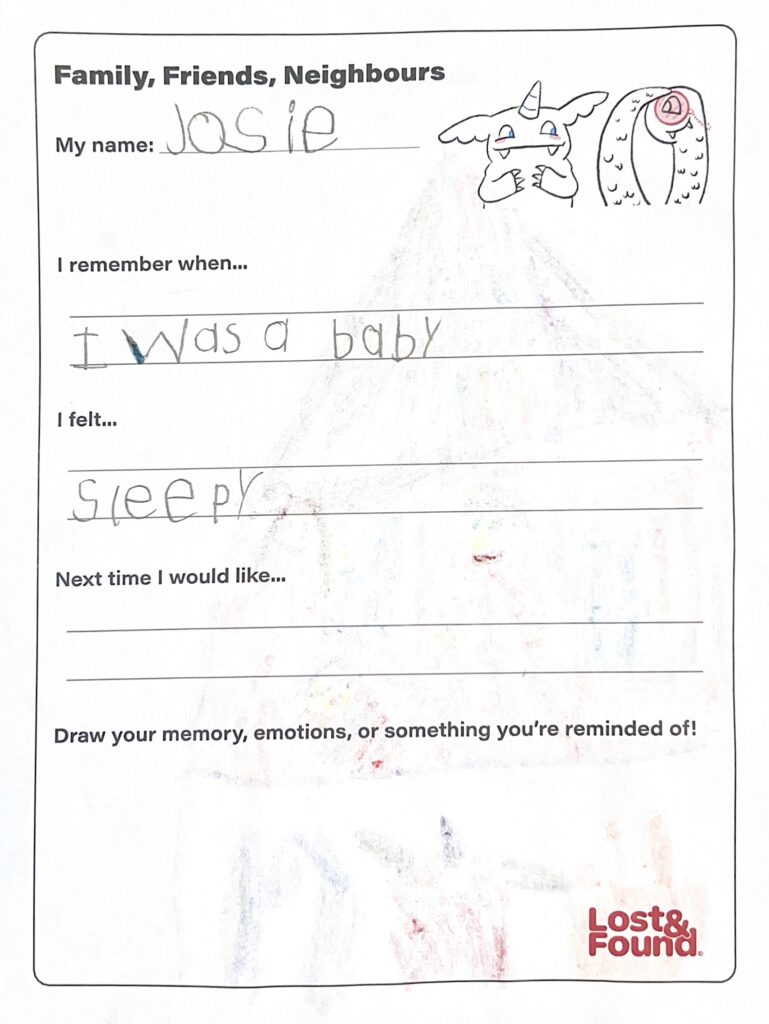 Family, Friends, Neighbours
My name: Josie
I remember when...
I was a baby
I felt...
Sleepy
Next time I would like...
Draw your memory, emotions, or something you're reminded of!
Lost&
Found